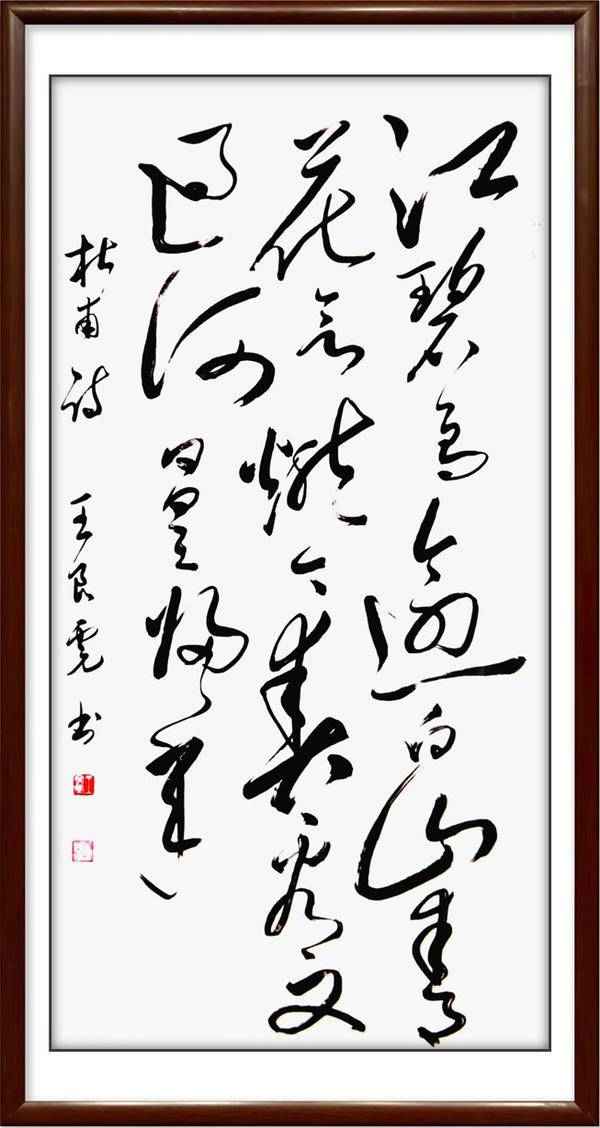 江碧鳥逾白山青
花欲燃今春看又
過何日是歸年
杜甫詩 王良 书